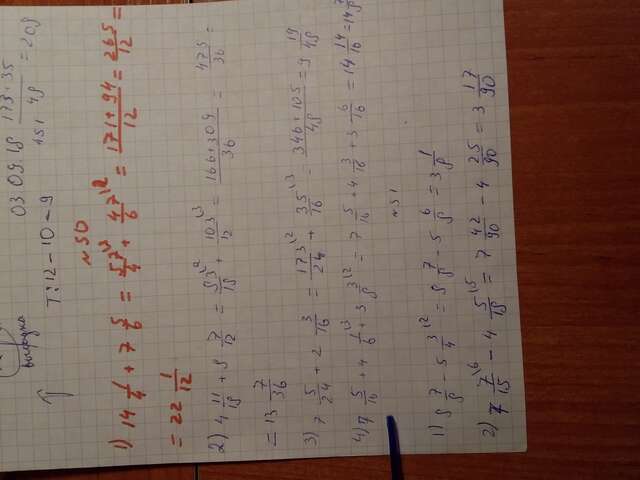 выгодка
03.09.18 173+35
48 = 208
451
T: 12 - 10 - 9
№50
1) 14 1/4 + 7 5/6 = 57\3/4 + 47\2/6 = 171+94/12 = 265/12 =
= 22 1/12
2) 4 11/18 + 8 7/12 = 83\2/18 + 103\3/12 = 166+309/36 = 475/36 =
= 13 7/36
3) 7 5/24 + 2 3/16 = 173\2/24 + 35\3/16 = 346+105/48 = 9 19/48
4) 7 5/16 + 4 1\3/6 + 3 3\2/8 = 7 5/16 + 4 3/16 + 3 6/16 = 14 14/16 = 14 7/8
№51
1) 8 7/8 - 5 3\2/4 = 8 7/8 - 5 6/8 = 3 1/8
2) 7 7\6/15 - 4 5\5/18 = 7 42/90 - 4 25/90 = 3 17/90